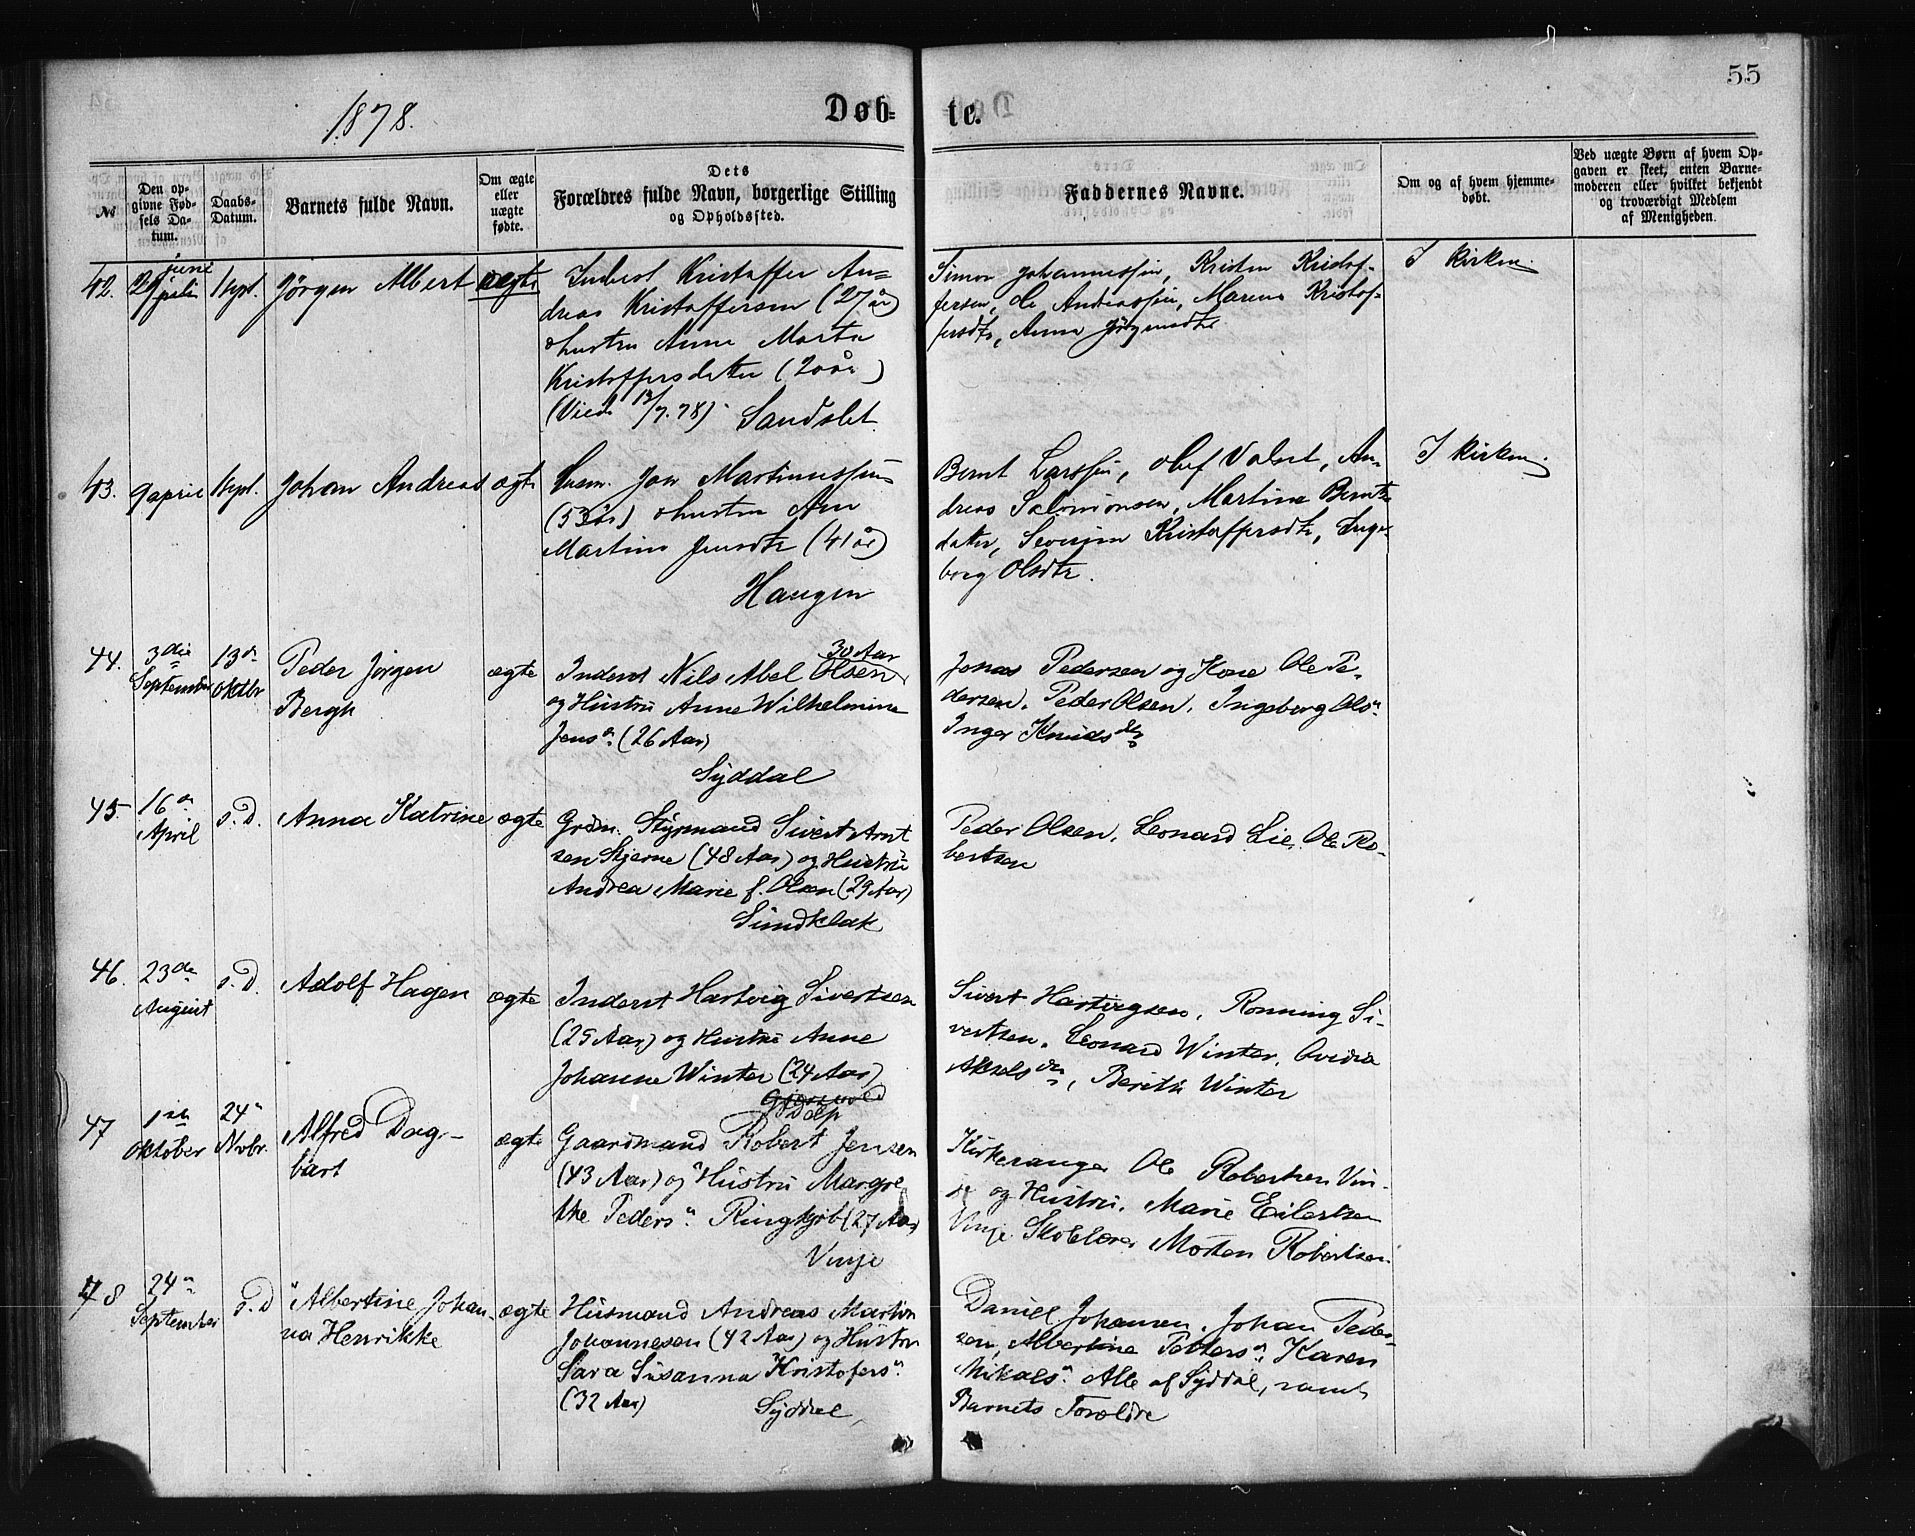 55
1878.
Døb=
te.
№
Den op-
givne Fød-
sels Da-
tum.
Daabs-
Datum.
Barnets fulde Navn.
Om ægte
eller
uægte
fødte.
Dets
Forældres fulde Navn, borgerlige Stilling
og Opholdssted.
Faddernes Navne.
Om og af hvem hjemme-
døbt.
Ved uægte Børn af hvem Op-
gaven er skeet, enten Barne-
moderen eller hvilket bekjendt
og troværdigt Medlem
af Menigheden.
42.
juni
1 sept.
Jörgen Albert
ægte
Inderst Kristoffer An=
dreas Kristoffersen (27 år)
o hustru Anne Marta
Kristoffersdatter (20 år)
(Viede 13/7. 78) Sandslet
Simon Johannessen, Kristen Kristof-
fersen, Ole Andreassen, Maren Kristof-
fersdtr, Anna Jörgensdtr
I kirken.
43.
9 april
1 sept.
Johan Andreas
ægte
Husm. Jon Martinussen
(53 år) o hustru Ane
Martine Jensdtr (41 år)
Haugen
Bernt Larssen, Olef Valset, An-
dreas Salomonsen, Martine Bernts-
datter, Severine Kristoffersdtr, Inge-
borg Olsdtr.
I kirken.
44.
3die
September
13de
Oktbr
Peder Jörgen
Bergh
ægte
30 Aar
Inderst Nils Abel Olsen
og Hustru Anne Wilhelmine
Jensn (26 Aar)
Syddal
Jonas Pedersen og Kone Ole Pe-
dersen. Peder Olsen. Ingeborg Olsn
Inger Knudsdtr
45.
16de
April
s. D.
Anna Katrine
ægte
Grdm. Styrmand Sivert Arnt
sen Stjerne (48 Aar) og Hustru
Andrea Marie f. Olsen (29 Aar)
Sundklak
Peder Olsen. Leonard Lie. Ole Ro-
bertsen
46.
23de
August
s. D.
Adolf Hagen
ægte
Inderst Hartvig Sivertsen
(25 Aar) og Hustru Anne
Johanne Winter (24 Aar)
Sivert Hartvigsen. Ronning Si-
vertsen. Leonard Winter. Ovidia
Akselsdtr, Berith Winter
47
1ste
Oktober
24de
Novbr.
Alfred Dag-
bart
ægte
Gaardmand Robert Jensen
(43 Aar) og Hustru Margre
the Pedersn Ringkjöb (27 Aar)
Vinje
Kirkesanger Ole Robertsen Vin-
je og Hustru. Marie Eilertsen
Vinje. Skolelærer Morten Robertsen
48
24de
September
s. D
Albertine Johan
na Henrikke
ægte
Husmand Andreas Martin
Johannesen (42 Aar) og Hustru
Sara Susanna Kristofersn
(32 Aar)
Syddal,
Daniel Johansen. Johan Peder-
sen, Albertine Pettersn. Karen
Mikalsn. Alle af Syddal, samt
Barnets Forældre